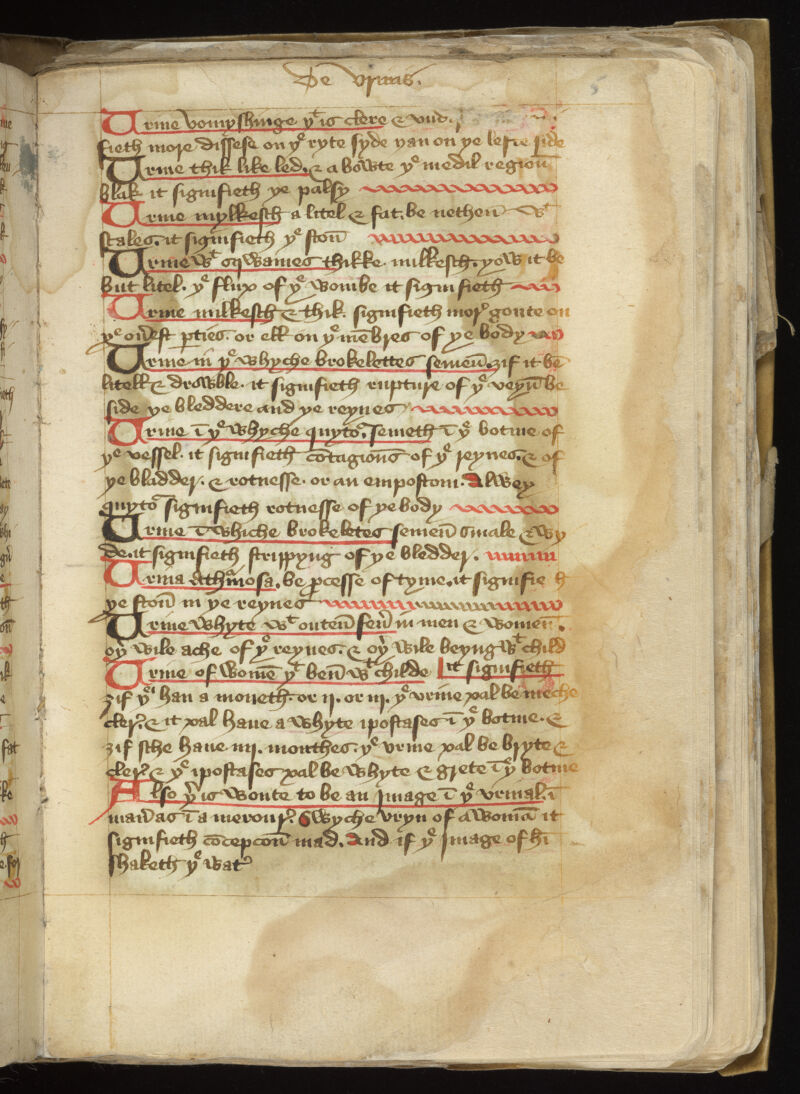 De Vrinis.
5
Urine vomyshinge yt is clere & vnd.
fieth more dissese on ye ryte syde yan on ye lefte side
Urine thik like led. & abowte ye medil region
blak it signifieth ye palsy
Urine mylkesch a litel & fat. be nethen wt
scales. it signifieth ye ston
Urine wt sqwames thikke. milkesch. yow it be
but litel. ye flux of ye wombe it signifieth
Urine milkesch & thik. signifieth mor goute on
ye ouest pties. or ell on ye mēbres of ye body
Urine in ye whyche brokelettes semen. ȝif it be
litell & drowble. it signifieth rupture of ye veyn be
side ye bleddere and ye reynes
Urine ī ye whyche quytor. semeth ī ye botme of
ye vessel. it signifieth cōtagious of ye reynes. & of
ye bladder. & rotnesse. or an empostom. Alwey
quytor signifieth rotnesse of ye body
Urine ī whiche brokeletes semen smale & wy
de. it signifieth strippyng of ye bledder.
Urina Athimosa. be pcesse of tyme. it signifie h
ye ston in ye reynes
Urine whyte wt outen fen in men & women.
oyr wile ache of ye reynes. & oyr wile beyng wt child
Urine of womē yt ben wt childe it signifieth
ȝif yei han a moneth. or ij. or iij. ye vrine xal be meche
cler. & it xal haue a whyte ipostases ī ye botme. &
ȝif sche haue iiij. monthes. ye vrine xal be bryte &
cler. & ye ipostases xal be whyte & grete ī ye botme
Also yer is wonte to be an Image ī ye vrinal. ī
man as ī a merour. Swyche vryn of a womā it
signifieth cōcepcon mad. And if ye Image of hī
shaketh ye wat